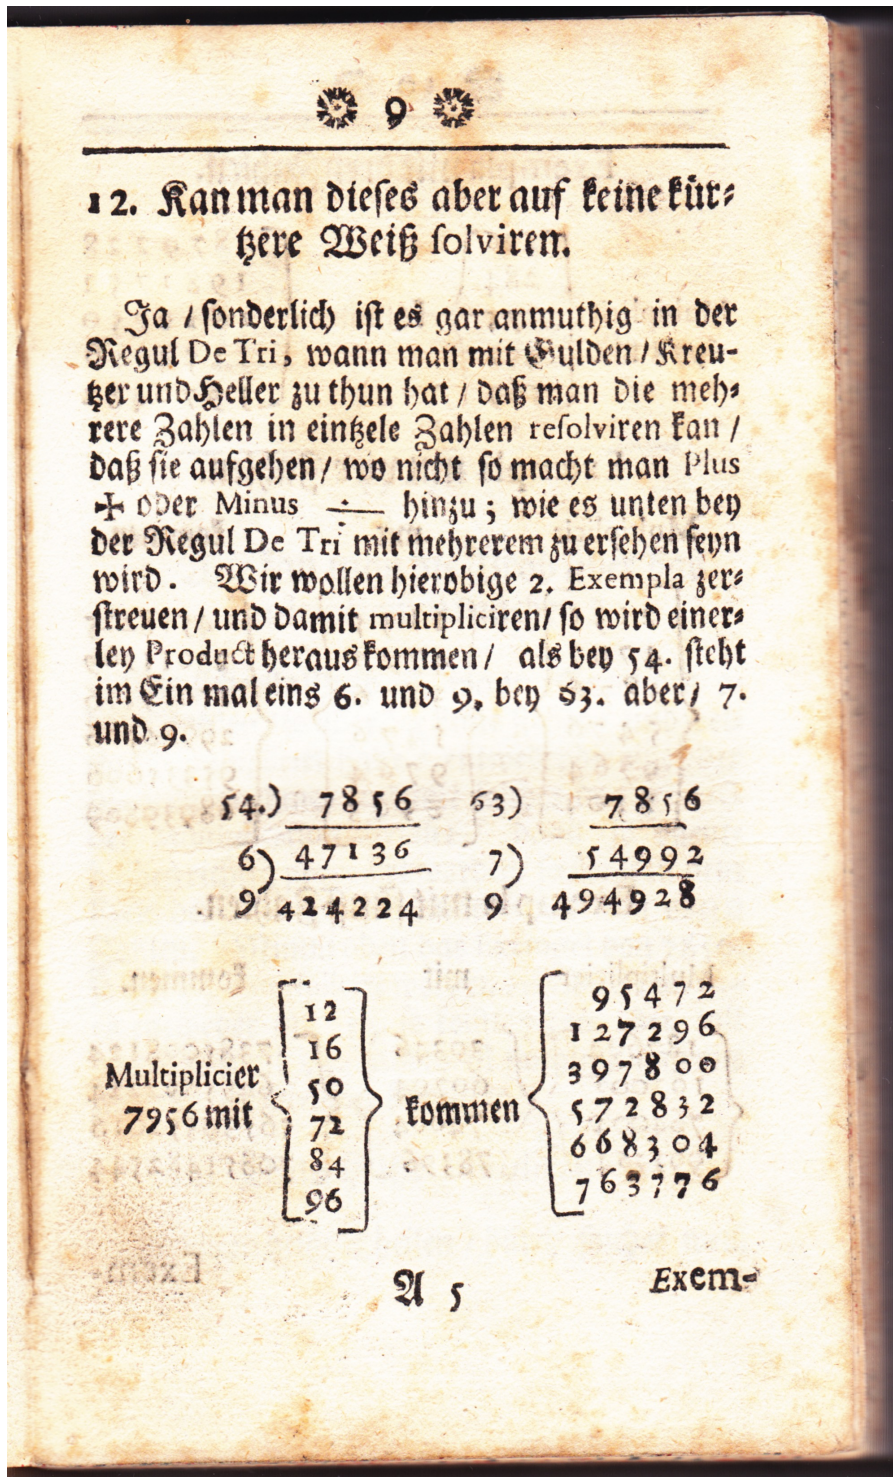 9
12. Kan man dieses aber auf keine kür⸗
tzere Weiß solviren.
Ja / sonderlich ist es gar anmuthig in der
Regul De Tri, wann man mit Gulden / Kreu-
tzer und Heller zu thun hat / daß man die meh⸗
rere Zahlen in eintzele Zahlen resolviren kan /
daß sie aufgehen / wo nicht so macht man Plus
✢ oder Minus ÷ hinzu ; wie es unten bey
der Regul De Tri mit mehrerem zu ersehen seyn
wird. Wir wollen hierobige 2. Exempla zer⸗
streuen / und damit multipliciren / so wird einer⸗
ley Product heraus kommen / als bey 54. steht
im Ein mal eins 6. und 9, bey 63. aber / 7.
und 9.
54.) 7856 63) 7856
6) 47136 7) 54992
9 424224 9 494928
Multiplicier
7956 mit
12
16
50
72
84
96
kommen
95472
127296
397800
572832
668304
763776
A 5 Exem⸗